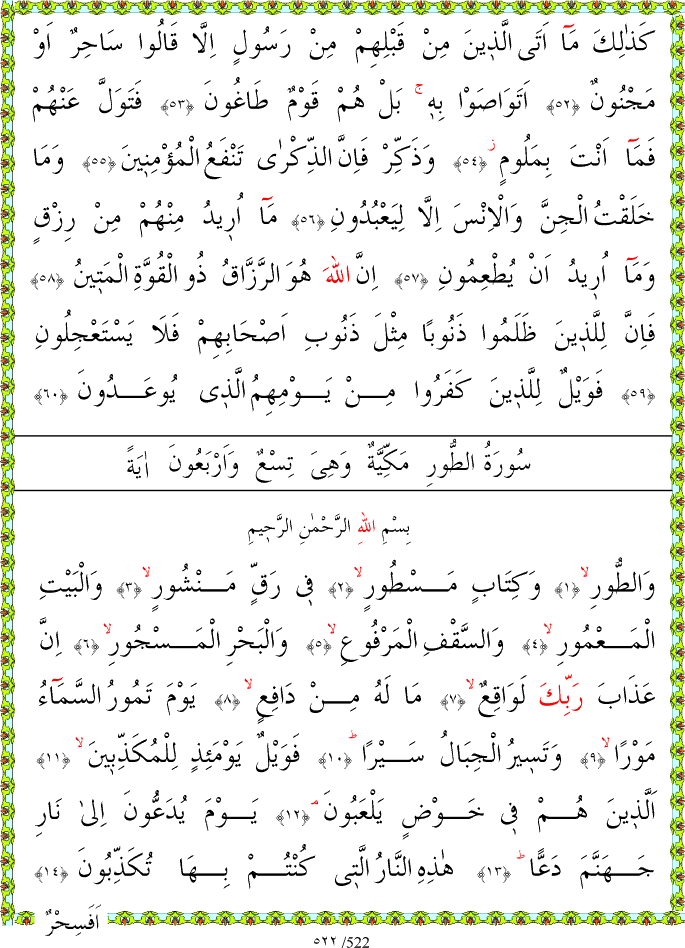 كَذٰلِكَ مَٓا اَتَى الَّذ۪ينَ مِنْ قَبْلِهِمْ مِنْ رَسُولٍ اِلَّا قَالُوا سَاحِرٌ اَوْ
مَجْنُونٌ ﴿٥٢﴾ اَتَوَاصَوْا بِه۪ۚ بَلْ هُمْ قَوْمٌ طَاغُونَ ﴿٥٣﴾ فَتَوَلَّ عَنْهُمْ
فَمَٓا اَنْتَ بِمَلُومٍۘ ﴿٥٤﴾ وَذَكِّرْ فَاِنَّ الذِّكْرٰى تَنْفَعُ الْمُؤْمِن۪ينَ ﴿٥٥﴾ وَمَا
خَلَقْتُ الْجِنَّ وَالْاِنْسَ اِلَّا لِيَعْبُدُونِ ﴿٥٦﴾ مَٓا اُر۪يدُ مِنْهُمْ مِنْ رِزْقٍ
وَمَٓا اُر۪يدُ اَنْ يُطْعِمُونِ ﴿٥٧﴾ اِنَّ اللّٰهَ هُوَ الرَّزَّاقُ ذُو الْقُوَّةِ الْمَت۪ينُ ﴿٥٨﴾
فَاِنَّ لِلَّذ۪ينَ ظَلَمُوا ذَنُوبًا مِثْلَ ذَنُوبِ اَصْحَابِهِمْ فَلَا يَسْتَعْجِلُونِ
﴿٥٩﴾ فَوَيْلٌ لِلَّذ۪ينَ كَفَرُوا مِنْ يَوْمِهِمُ الَّذ۪ى يُوعَدُونَ ﴿٦٠﴾
سُورَةُ الطُّورِ مَكِّيَّةٌ وَهِىَ تِسْعٌ وَاَرْبَعُونَ اٰيَةً
بِسْمِ اللّٰهِ الرَّحْمٰنِ الرَّح۪يمِ
وَالطُّورِۙ ﴿١﴾ وَكِتَابٍ مَسْطُورٍۙ ﴿٢﴾ ف۪ى رَقٍّ مَنْشُورٍۙ ﴿٣﴾ وَالْبَيْتِ
الْمَعْمُورِۙ ﴿٤﴾ وَالسَّقْفِ الْمَرْفُوعِۙ ﴿٥﴾ وَالْبَحْرِ الْمَسْجُورِۙ ﴿٦﴾ اِنَّ
عَذَابَ رَبِّكَ لَوَاقِعٌۙ ﴿٧﴾ مَا لَهُ مِنْ دَافِعٍۙ ﴿٨﴾ يَوْمَ تَمُورُ السَّمَٓاءُ
مَوْرًاۙ ﴿٩﴾ وَتَس۪يرُ الْجِبَالُ سَيْرًاۜ ﴿١٠﴾ فَوَيْلٌ يَوْمَئِذٍ لِلْمُكَذِّب۪ينَۙ ﴿١١﴾
اَلَّذ۪ينَ هُمْ ف۪ى خَوْضٍ يَلْعَبُونَۢ ﴿١٢﴾ يَوْمَ يُدَعُّونَ اِلٰى نَارِ
جَهَنَّمَ دَعًّاۜ ﴿١٣﴾ هٰذِهِ النَّارُ الَّت۪ى كُنْتُمْ بِهَا تُكَذِّبُونَ ﴿١٤﴾
اَفَسِحْرٌ
٥٢٢ /522